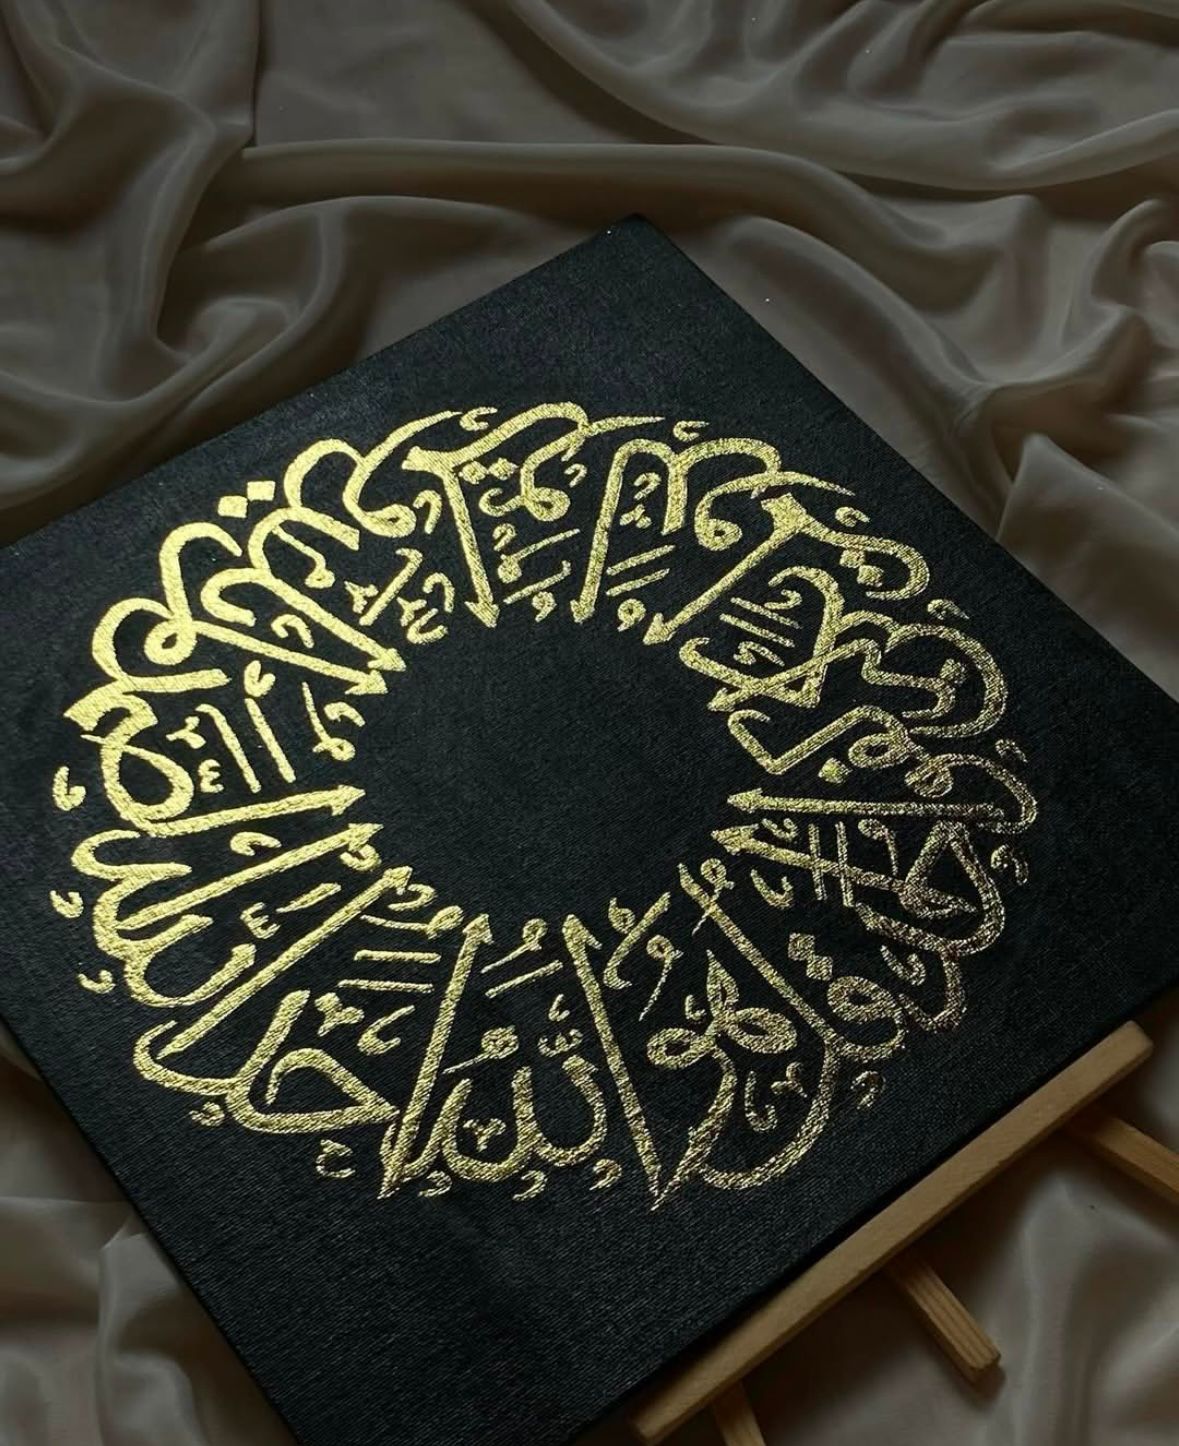 قل هو الله أحد الله الصمد لم يلد ولم يولد ولم يكن له كفوا أحد